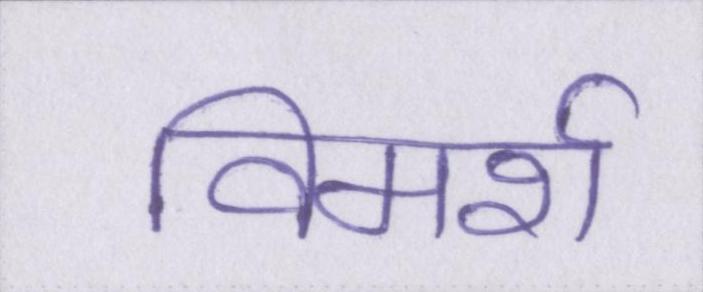 विमर्श